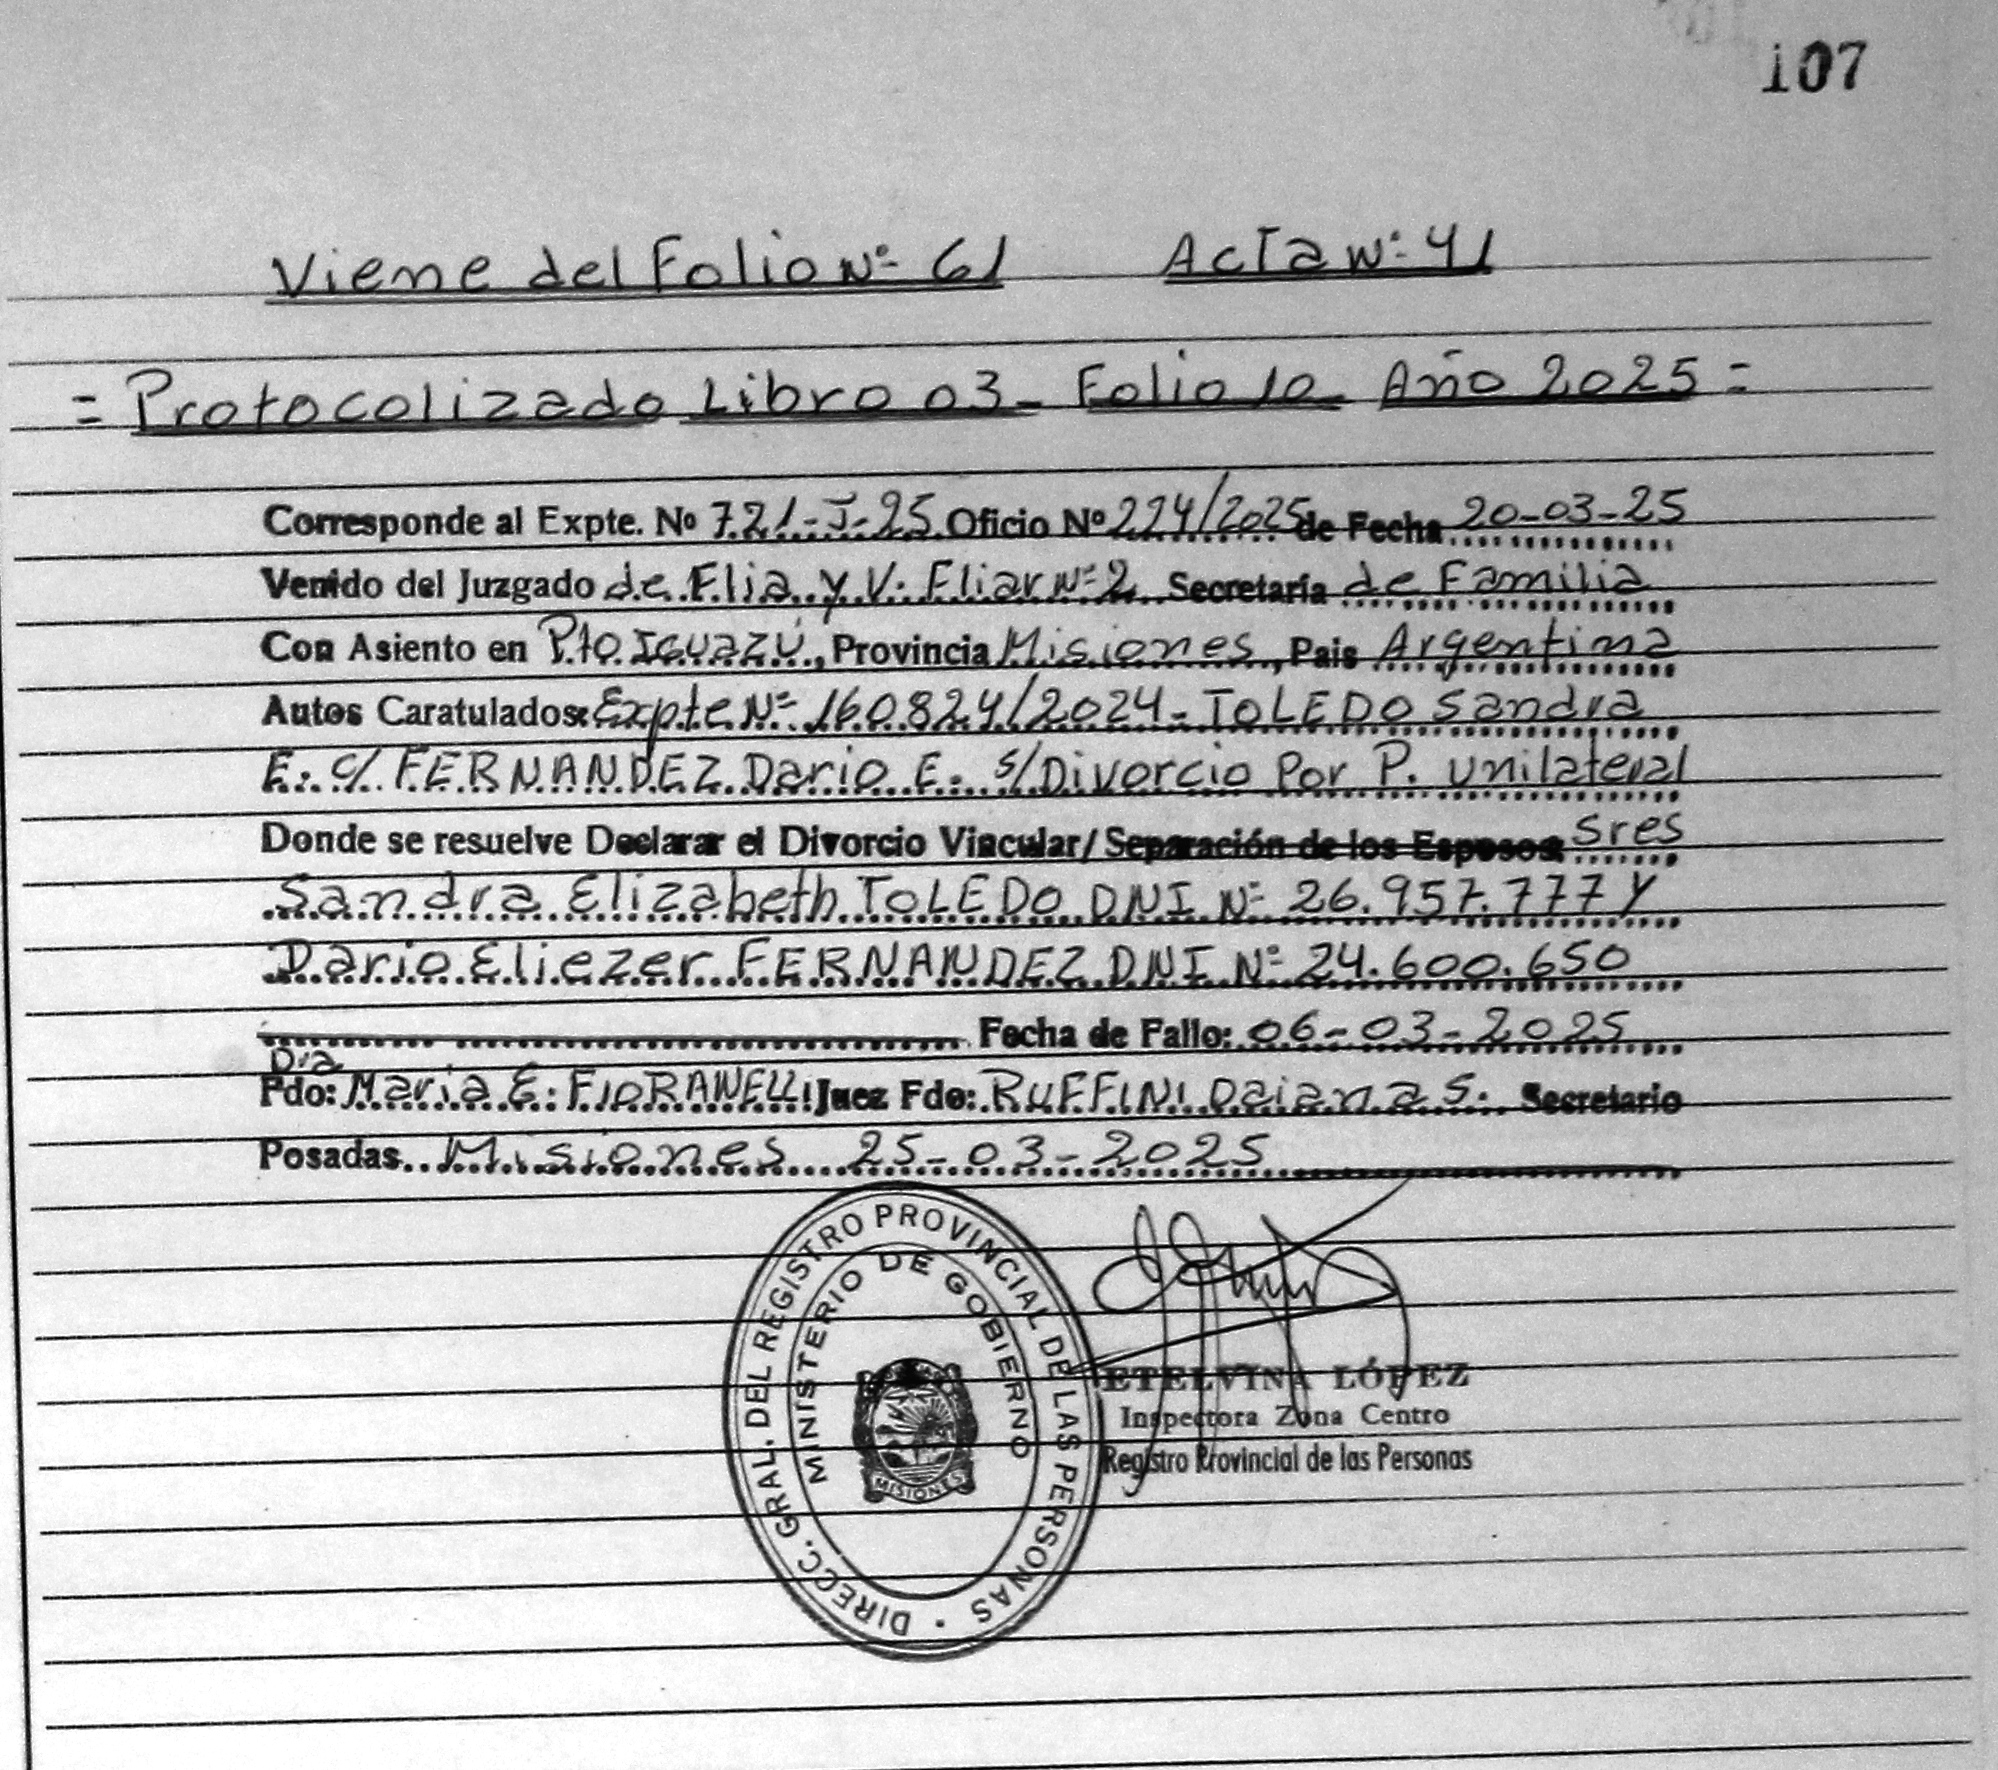 107
Viene del Folio Nº 61 Acta Nº 41
= Protocolizado Libro 03 - Folio 10 - Año 2025 =
Corresponde al Expte. Nº 721-J-25 Oficio Nº 224/2025 de Fecha 20-03-25
Venido del Juzgado de Flia y V. Fliar Nº 2 Secretaría de Familia
Con Asiento en Pto Iguazú, Provincia Misiones, Pais Argentina
Autos Caratulados: Expte Nº 160824/2024 - TOLEDO Sandra
E. c/ FERNANDEZ Dario E. s/ Divorcio Por P. Unilateral
Donde se resuelve Declarar el Divorcio Vincular/ Separación de los Esposos: Sres
Sandra Elizabeth TOLEDO DNI Nº 26.957.777 y
Dario Eliezer FERNANDEZ DNI Nº 24.600.650
Fecha de Fallo: 06-03-2025
Dra
Fdo: Maria E. FIORANELLI Juez Fdo: RUFFINI Daiana S. Secretario
Posadas Misiones 25-03-2025
DIRECC. GRAL. DEL REGISTRO PROVINCIAL DE LAS PERSONAS
MINISTERIO DE GOBIERNO
MISIONES
ETELVINA LÓPEZ
Inspectora Zona Centro
Registro Provincial de las Personas